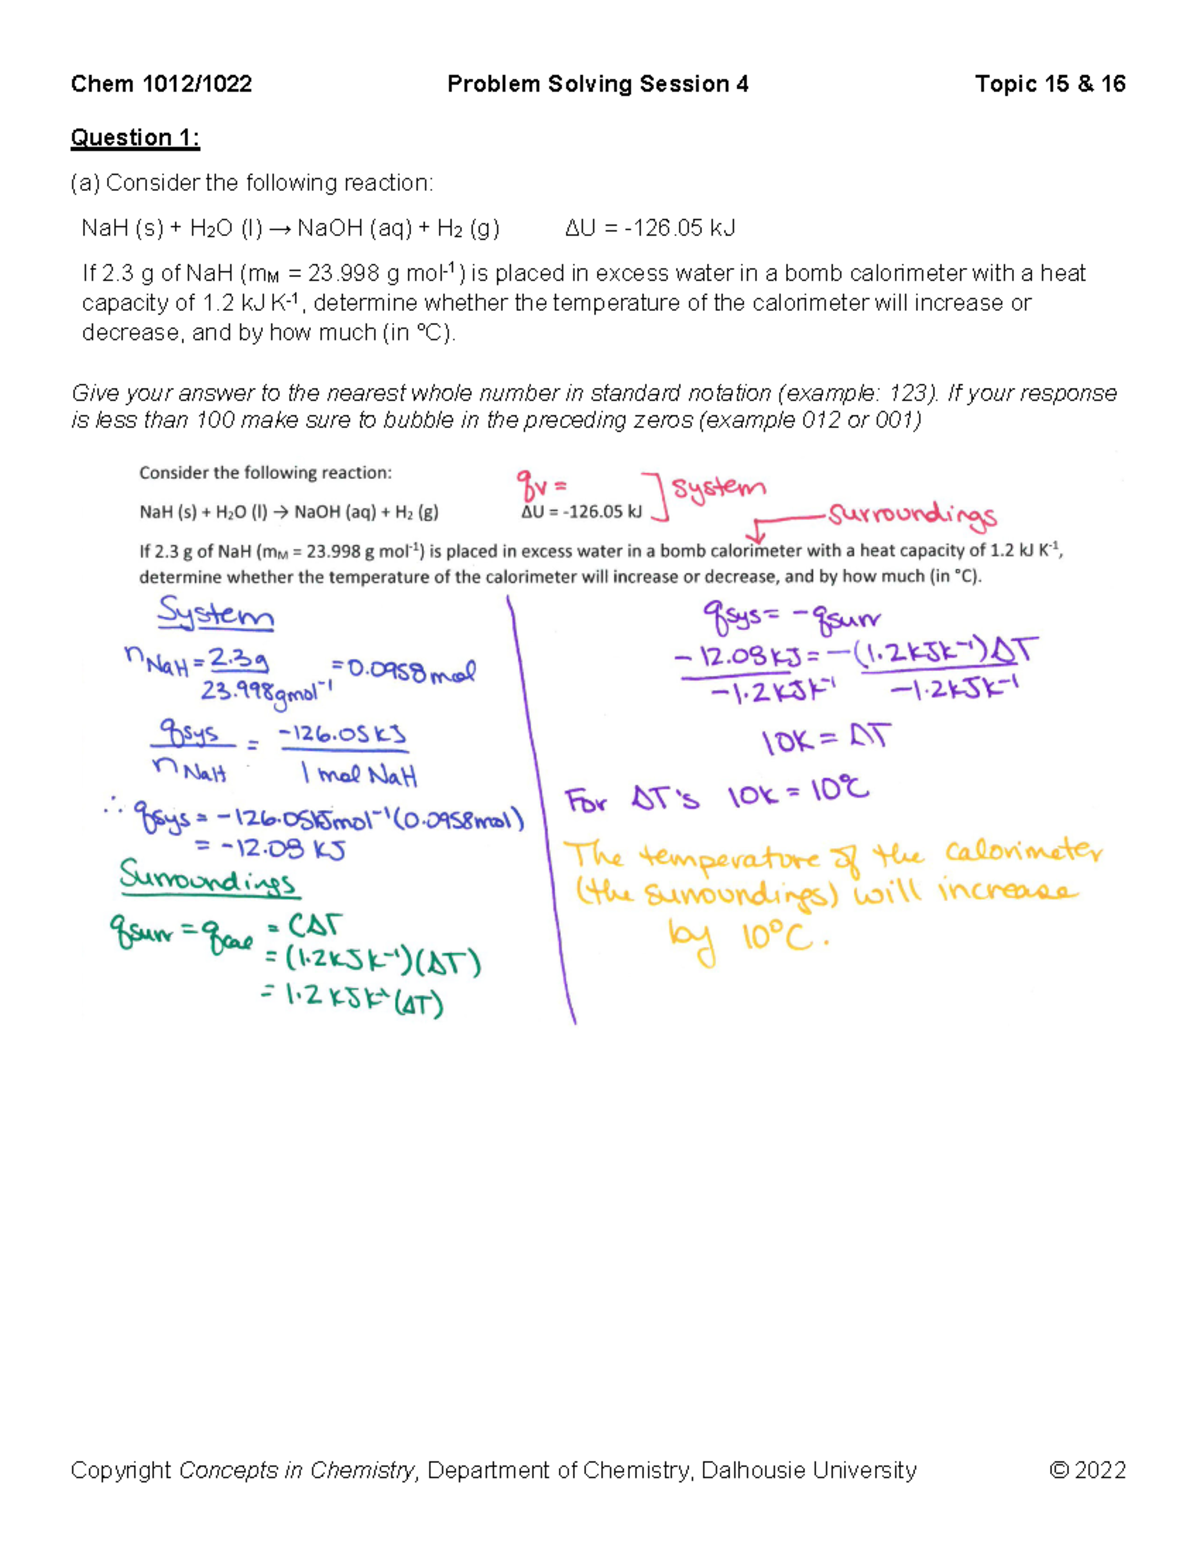 Chem 1012/1022 Problem Solving Session 4 Topic 15 & 16
Question 1:
(a) Consider the following reaction:
NaH (s) + H₂O (l) → NaOH (aq) + H₂ (g) ΔU = -126.05 kJ
If 2.3 g of NaH (mM = 23.998 g mol⁻¹) is placed in excess water in a bomb calorimeter with a heat
capacity of 1.2 kJ K⁻¹, determine whether the temperature of the calorimeter will increase or
decrease, and by how much (in ºC).
Give your answer to the nearest whole number in standard notation (example: 123). If your response
is less than 100 make sure to bubble in the preceding zeros (example 012 or 001)
Consider the following reaction:
qv =
] system
NaH (s) + H₂O (l) → NaOH (aq) + H₂ (g) ΔU = -126.05 kJ
surroundings
If 2.3 g of NaH (mM = 23.998 g mol⁻¹) is placed in excess water in a bomb calorimeter with a heat capacity of 1.2 kJ K⁻¹,
determine whether the temperature of the calorimeter will increase or decrease, and by how much (in °C).
System
nNaH = 2.3g = 0.0958 mol
23.998gmol⁻¹
qsys = -126.05 kJ
nNaH 1 mol NaH
∴ qsys = -126.05kJmol⁻¹(0.0958mol)
= -12.08 kJ
Surroundings
qsurr = qcal = CΔT
= (1.2kJK⁻¹)(ΔT)
= 1.2 kJK⁻¹(ΔT)
qsys = -qsurr
-12.08kJ = -(1.2kJK⁻¹)ΔT
-1.2kJK⁻¹ -1.2kJK⁻¹
10K = ΔT
For ΔT's 10K = 10°C
The temperature of the calorimeter
(the surroundings) will increase
by 10°C.
Copyright Concepts in Chemistry, Department of Chemistry, Dalhousie University © 2022